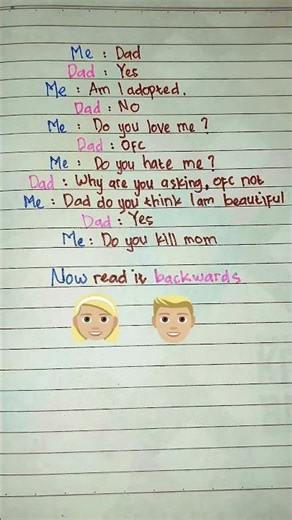 Me : Dad
Dad : Yes
Me : Am I adopted.
Dad : No
Me : Do you love me ?
Dad : OFC
Me : Do you hate me ?
Dad : Why are you asking, ofc not
Me : Dad do you think I am beautiful
Dad : Yes
Me : Do you kill mom
Now read is backwards